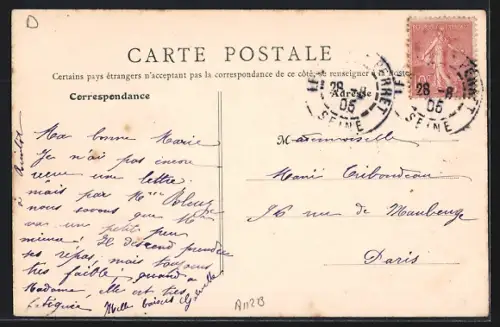 D
CARTE POSTALE
Certains pays étrangers n'acceptant pas la correspondance de ce côté, se renseigner
Correspondance
Adresse
PERRET
28 -8
05
SEINE
28 -8
05
SEINE
Ma bonne Marie
Je n'ai pas encore
recue une lettre
mais par Mme
nous savons que Mme
va un petit peu
mieux! Il descend prendre
ses repas, mais toujours
très faible; quand à
Madame, elle est très
fatiguée Mille baisers
à bientôt
Mademoiselle
Marie Triboudeau
96 rue de Maubeuge
Paris
A112B